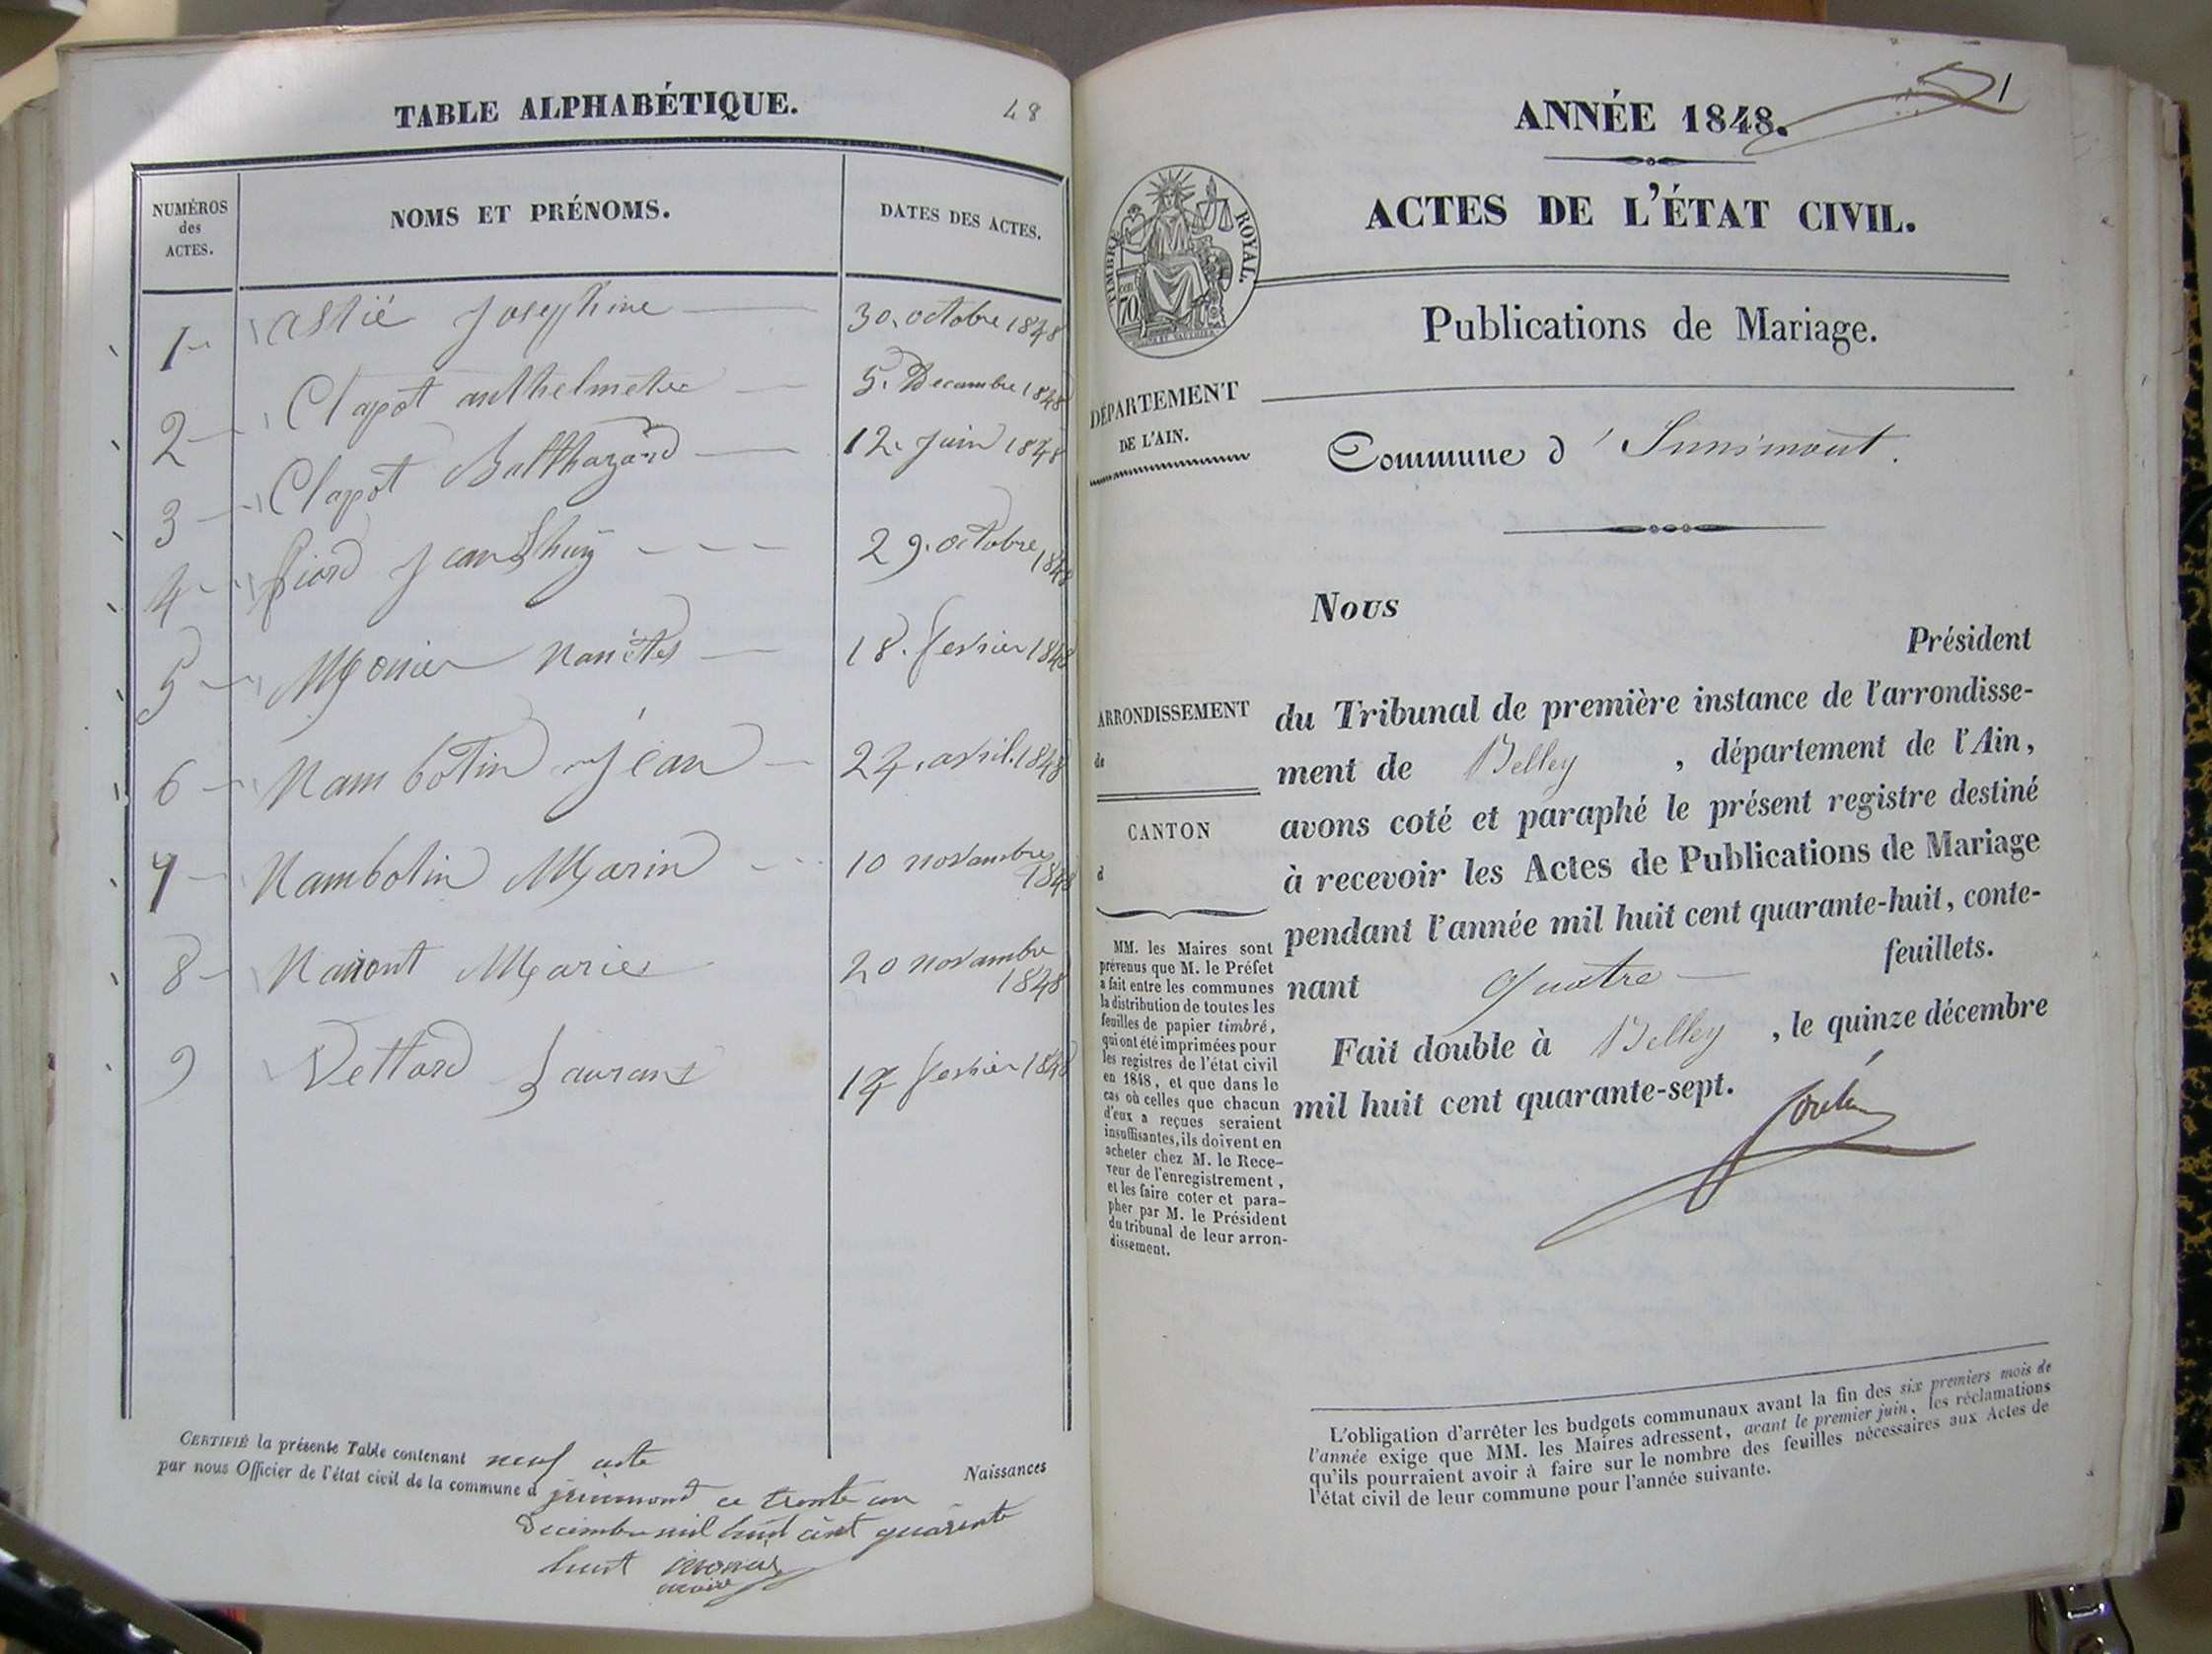 TABLE ALPHABÉTIQUE.
48
NUMÉROS
des
ACTES.
NOMS ET PRÉNOMS.
DATES DES ACTES.
1 Astié Josephine 30. octobre 1848
2 Clapot anthelmette 5. Decembre 1848
3 Clapot Balthazard 12. Juin 1848
4 Jean 29. octobre 1848
5 Monier 18. fevrier 1848
6 Nambotin Jean 24. avril. 1848
7 Nambotin Marin 10 novambre 1848
8 Marie 20 novambre 1848
9 Vettard Laurans 14 fevrier 1848
CERTIFIÉ la présente Table contenant neuf acte
par nous Officier de l'état civil de la commune d ce trente un
Naissances
decembre mil huit cent quarente
huit monier
maire
1
ANNÉE 1848.
ACTES DE L'ÉTAT CIVIL.
TIMBRE ROYAL.
cen. 70
Publications de Mariage.
DÉPARTEMENT
DE L'AIN.
Commune d'Innimont.
Nous
Président
ARRONDISSEMENT
de
CANTON
d
du Tribunal de première instance de l'arrondisse-
ment de Belley, département de l'Ain,
avons coté et paraphé le présent registre destiné
à recevoir les Actes de Publications de Mariage
pendant l'année mil huit cent quarante-huit, conte-
nant quatre feuillets.
Fait double à Belley, le quinze décembre
mil huit cent quarante-sept.
MM. les Maires sont
prévenus que M. le Préfet
a fait entre les communes
la distribution de toutes les
feuilles de papier timbré,
qui ont été imprimées pour
les registres de l'état civil
en 1848, et que dans le
cas où celles que chacun
d'eux a reçues seraient
insuffisantes, ils doivent en
acheter chez M. le Rece-
veur de l'enregistrement,
et les faire coter et para-
pher par M. le Président
du tribunal de leur arron-
dissement.
L'obligation d'arrêter les budgets communaux avant la fin des six premiers mois de
l'année exige que MM. les Maires adressent, avant le premier juin, les réclamations
qu'ils pourraient avoir à faire sur le nombre des feuilles nécessaires aux Actes de
l'état civil de leur commune pour l'année suivante.